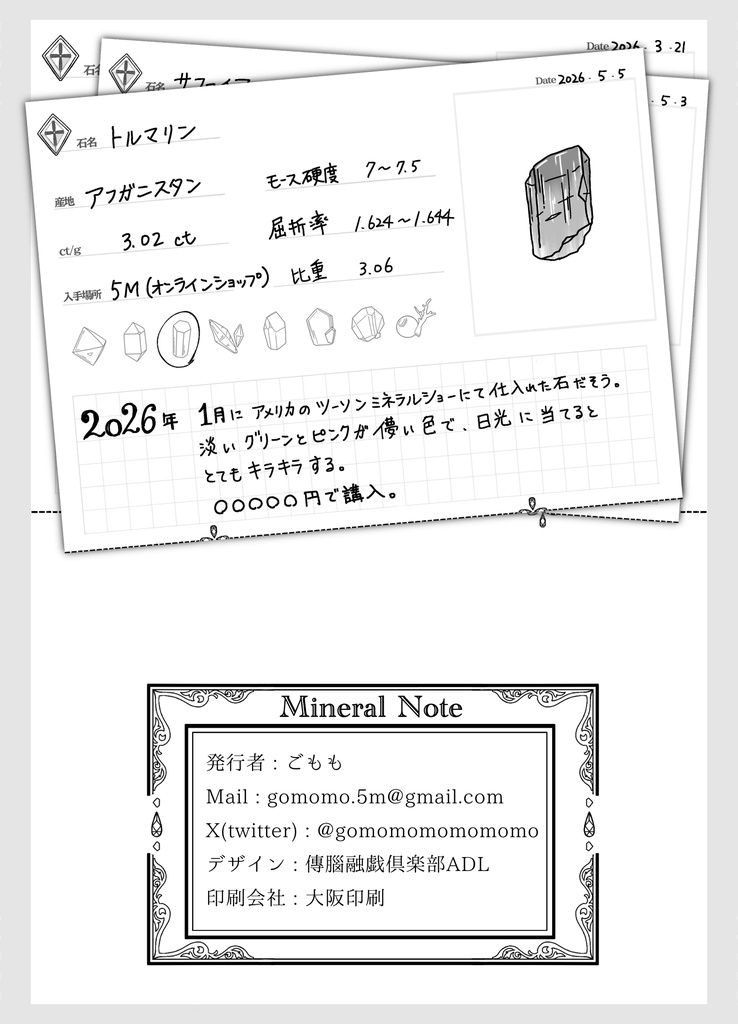 Date 2026.3.21
石名
石名 サファイア
5.3
Date 2026.5.5
石名 トルマリン
産地 アフガニスタン
モース硬度 7〜7.5
ct/g 3.02 ct
屈折率 1.624〜1.644
入手場所 5M(オンラインショップ)
比重 3.06
2026年 1月に アメリカの ツーソンミネラルショーにて仕入れた石だそう。
淡い グリーンと ピンクが 儚い 色で、日光に当てると
とても キラキラ する。
○○○○○円で購入。
Mineral Note
発行者:ごもも
Mail:gomomo.5m@gmail.com
X(twitter):@gomomomomomomo
デザイン:傳腦融戯倶楽部ADL
印刷会社:大阪印刷